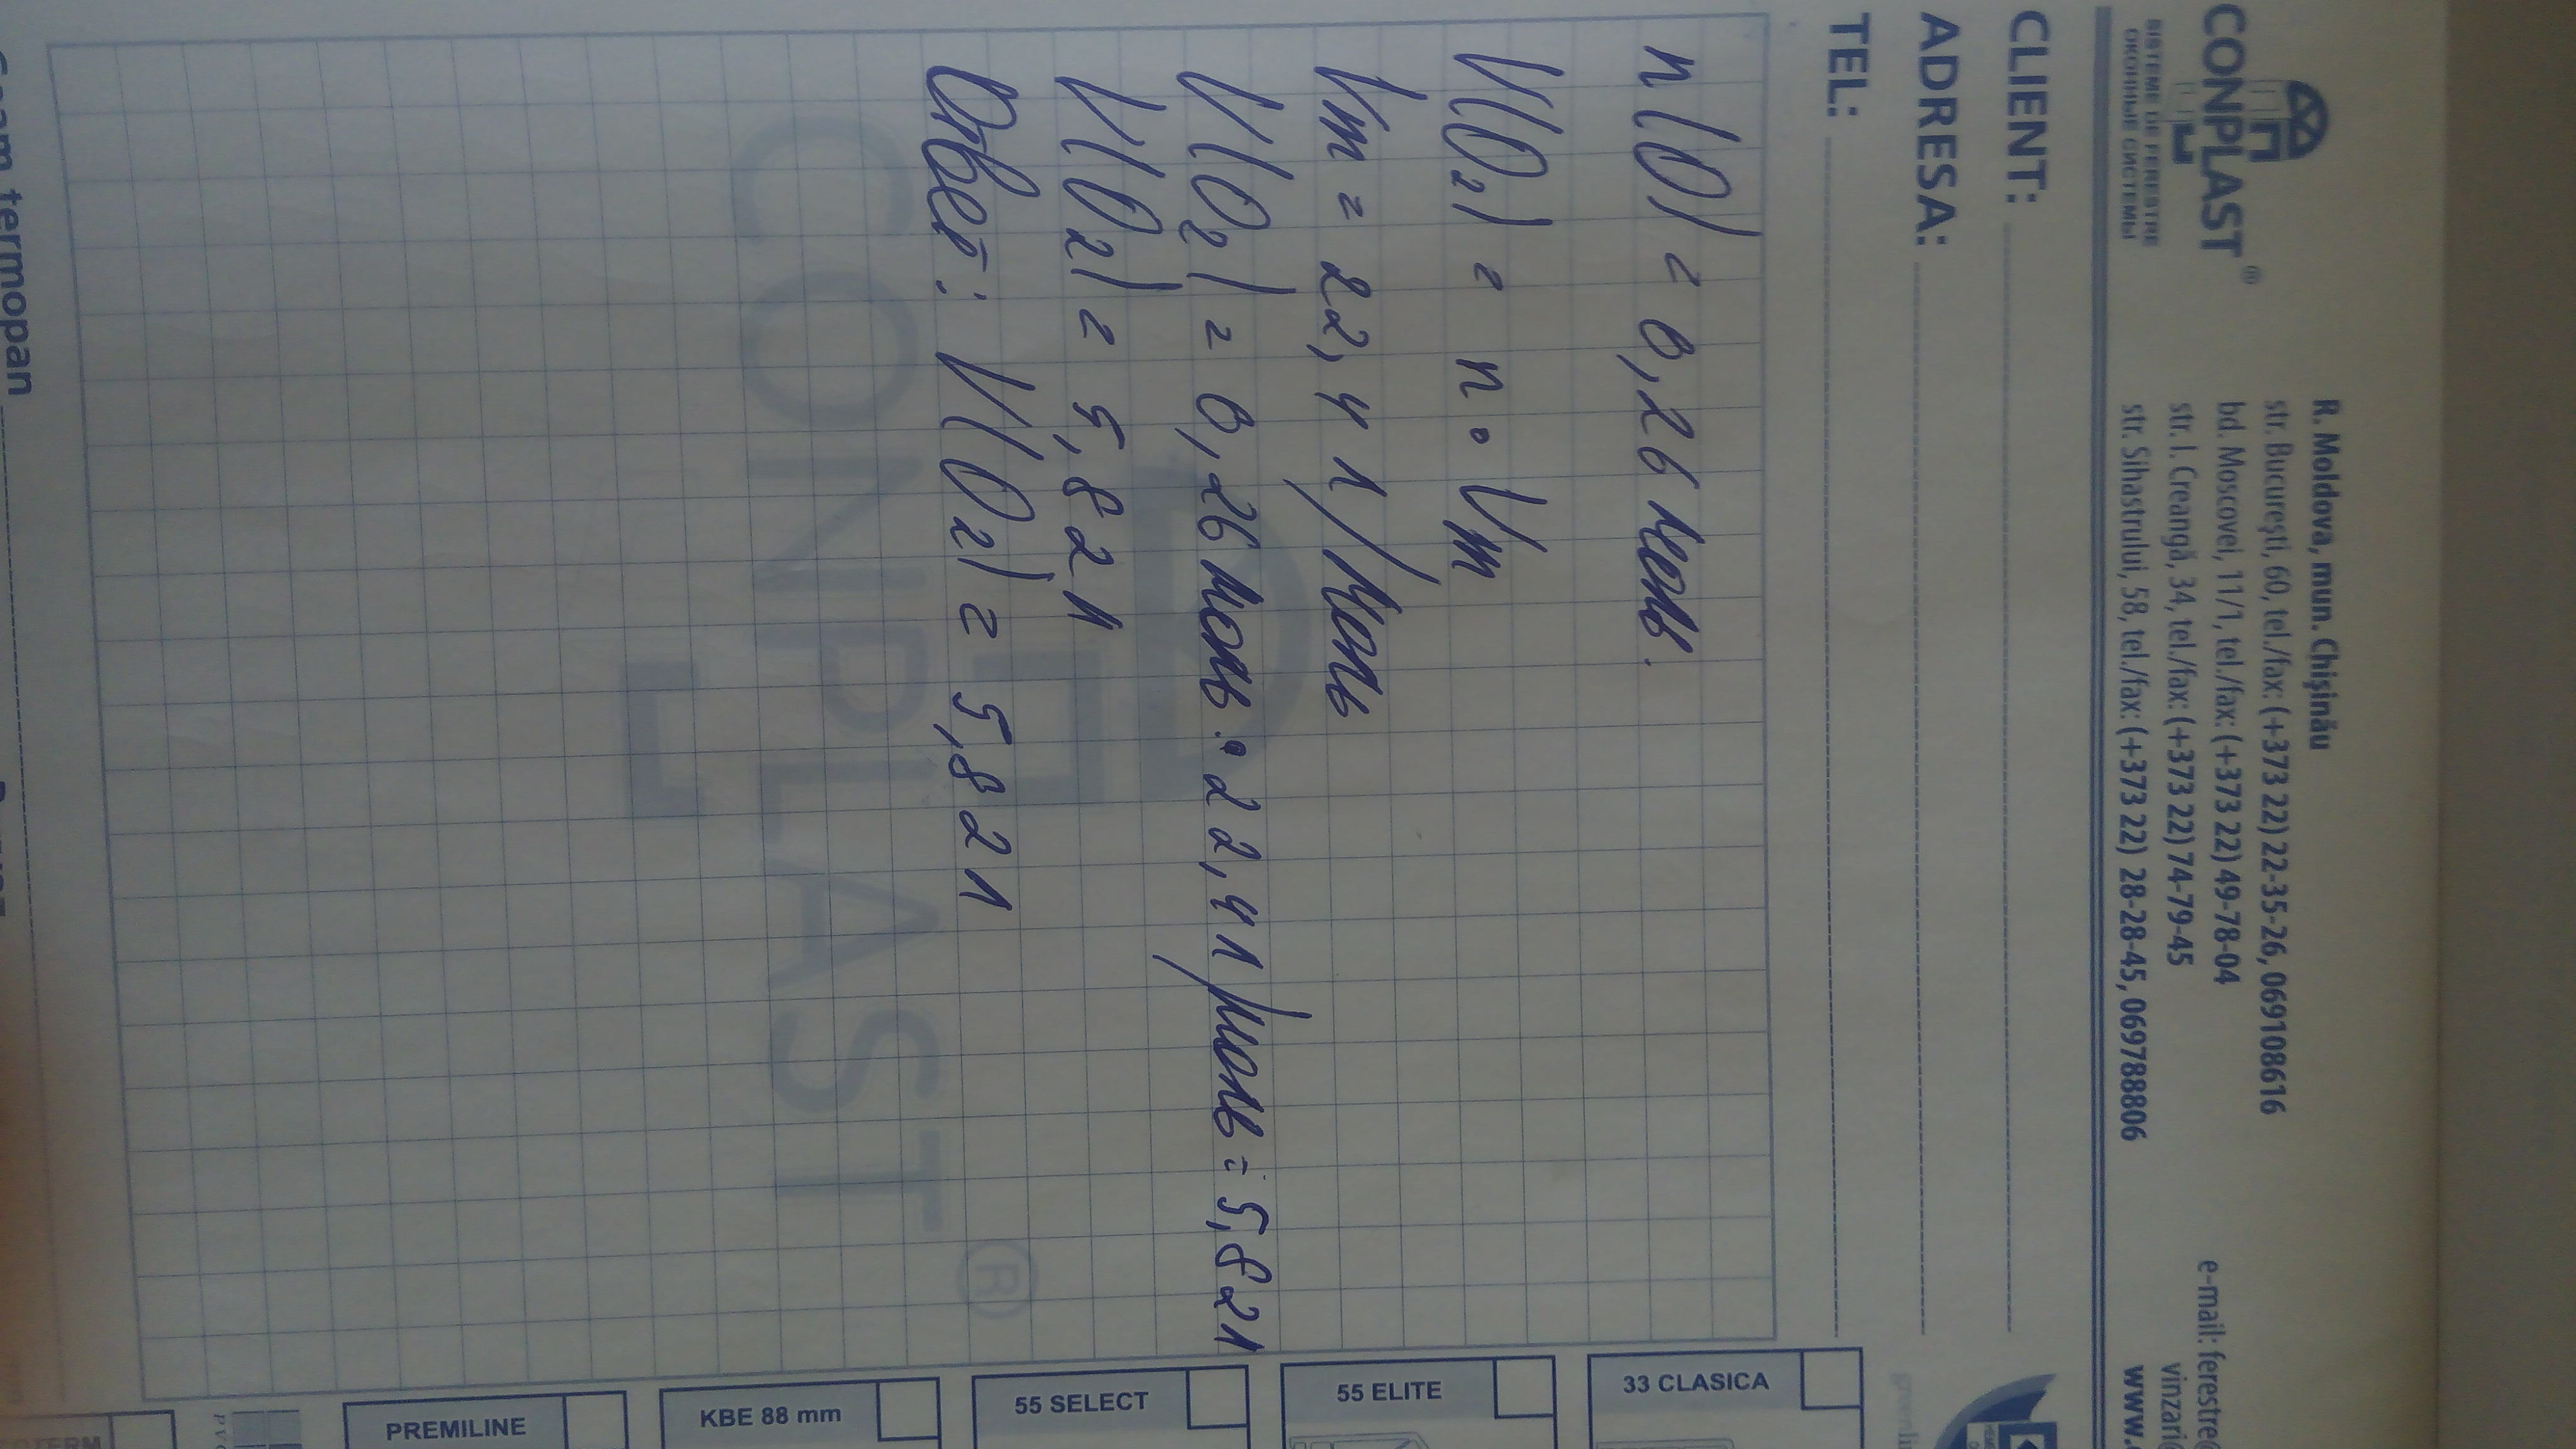 CONPLAST®
SISTEME DE FERESTRE
ОКОННЫЕ СИСТЕМЫ
R. Moldova, mun. Chişinău
str. Bucureşti, 60, tel./fax: (+373 22) 22-35-26, 069108616
bd. Moscovei, 11/1, tel./fax: (+373 22) 49-78-04
str. I. Creangă, 34, tel./fax: (+373 22) 74-79-45
str. Sihastrului, 58, tel./fax: (+373 22) 28-28-45, 069788806
e-mail: ferestre@
vinzari@
www.
CLIENT:
ADRESA:
TEL:
n(O) = 0,26 моль.
V(O2) = n · Vm
Vm = 22,4 л/моль
V(O2) = 0,26 моль · 22,4 л/моль = 5,82л
V(O2) = 5,82 л
Ответ: V(O2) = 5,82 л
CONPLAST®
33 CLASICA
55 ELITE
55 SELECT
KBE 88 mm
PREMILINE
termopan